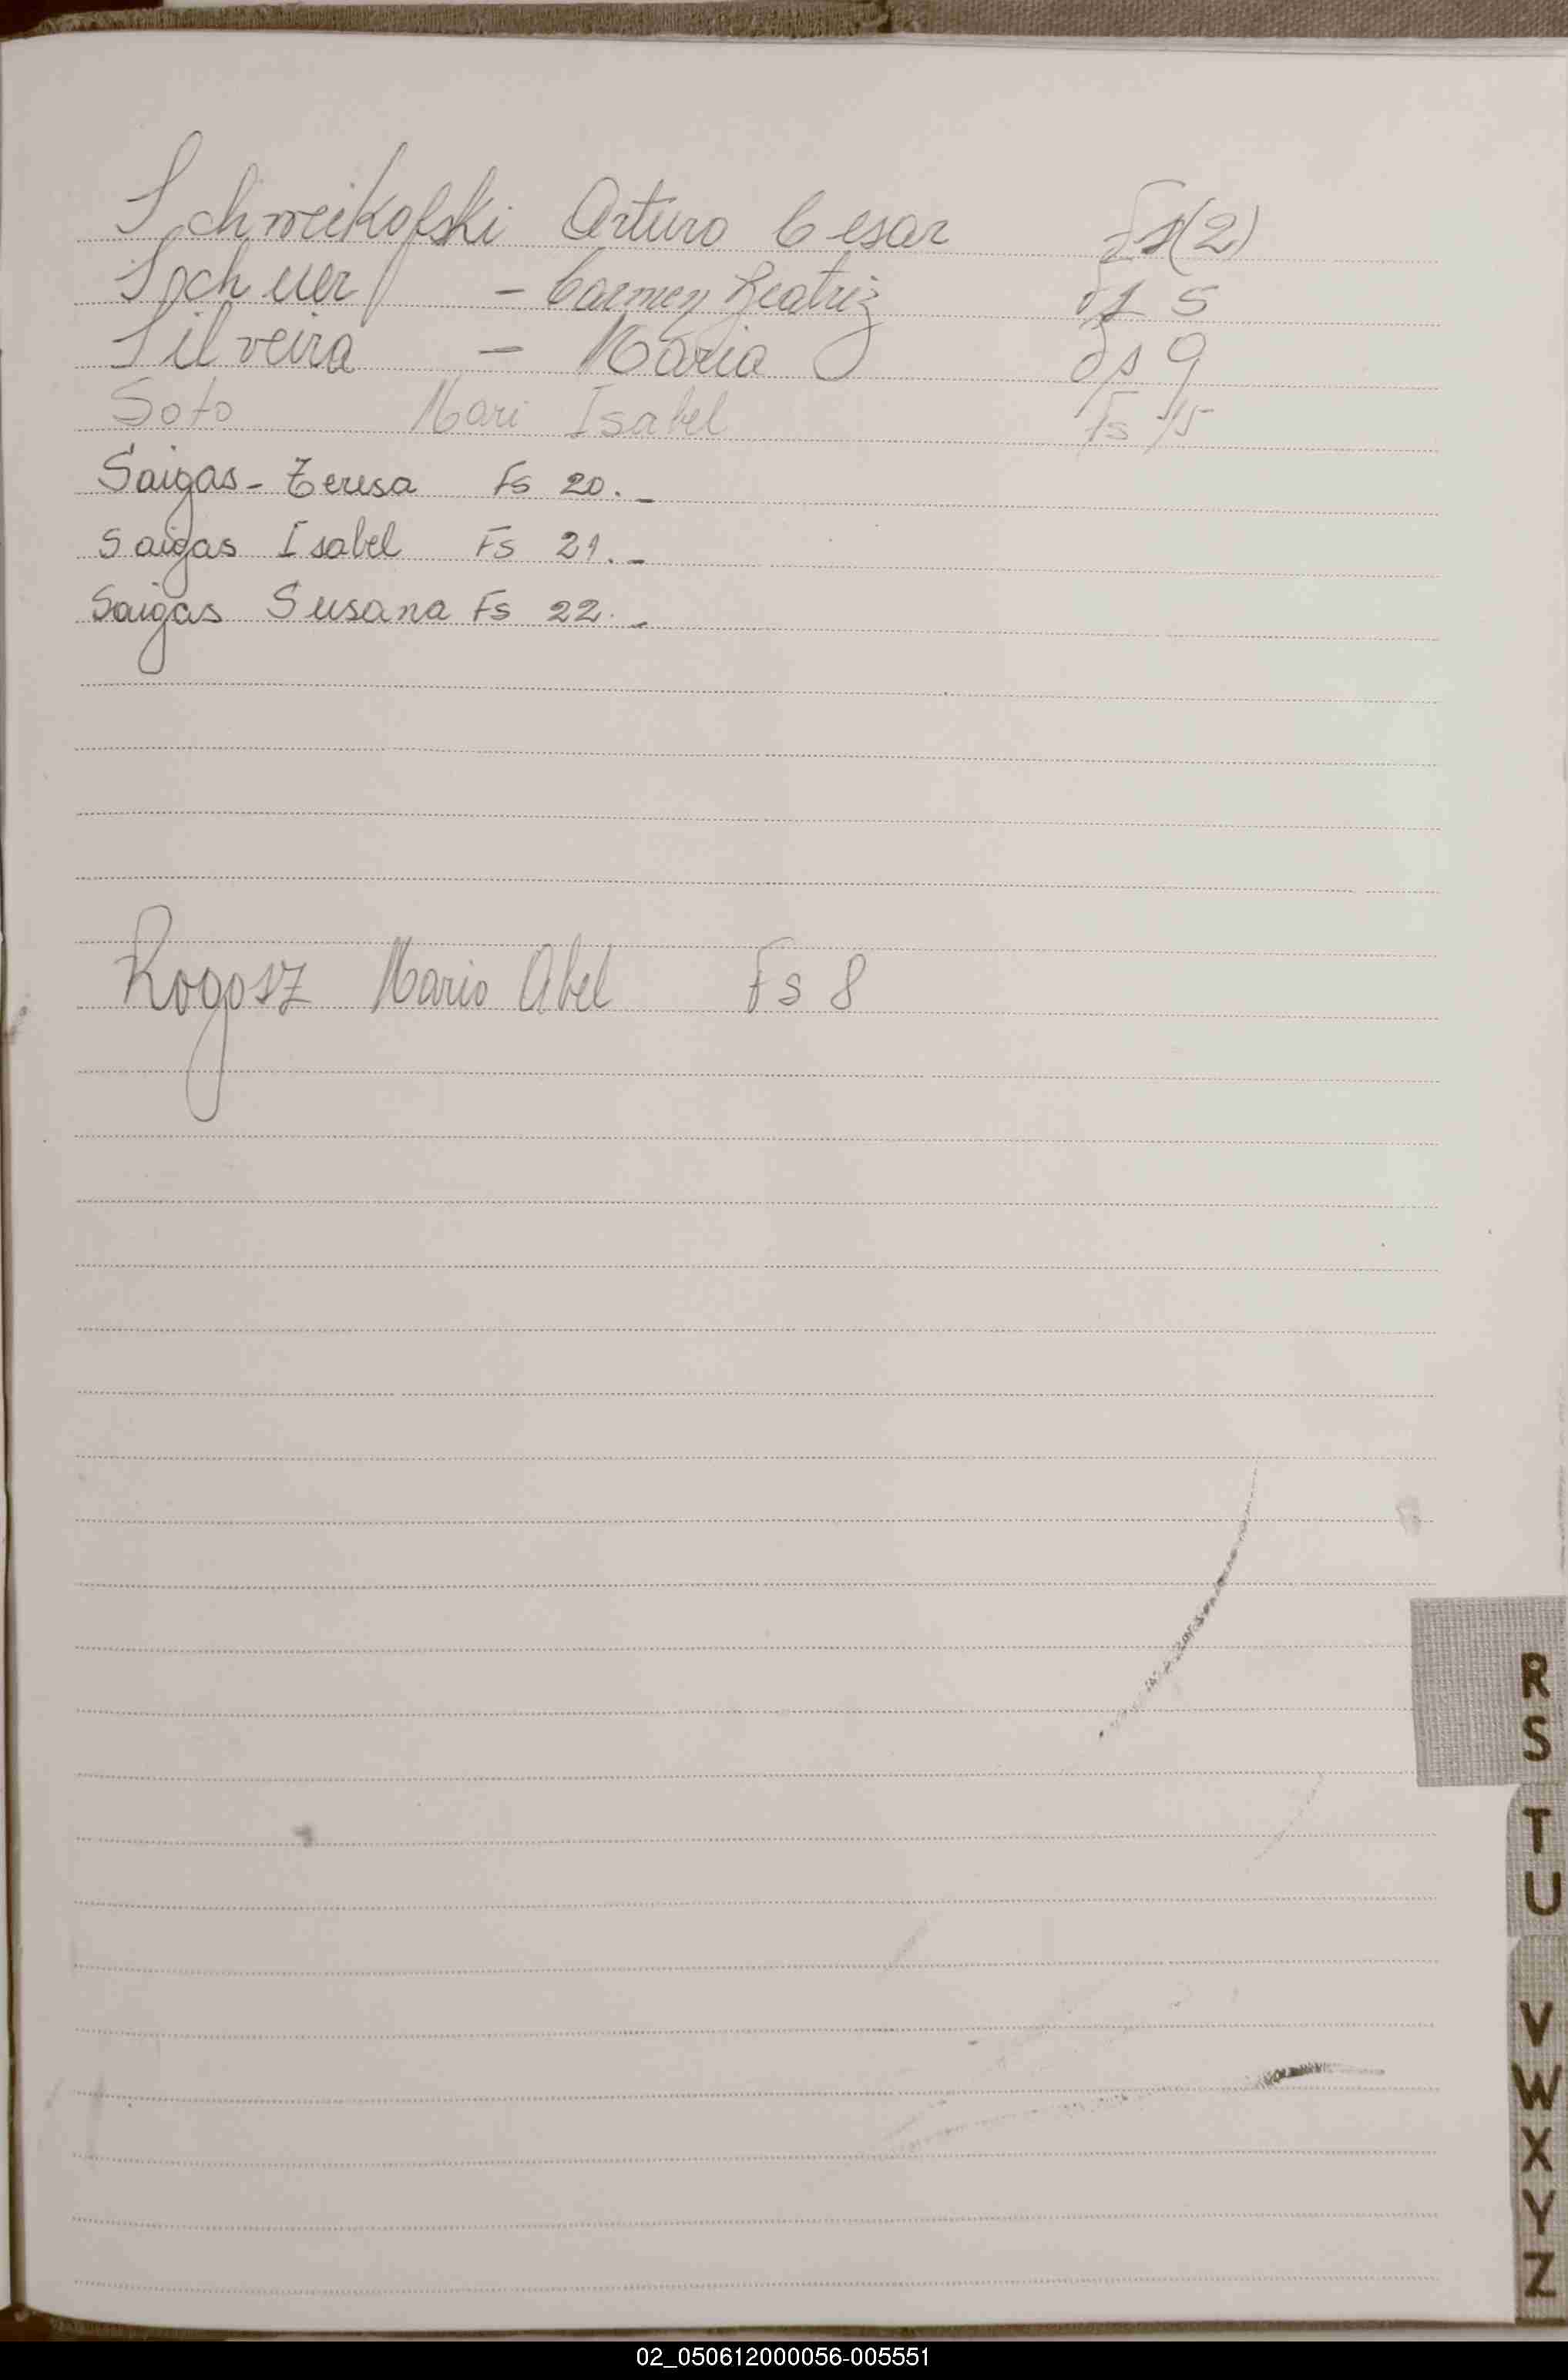 Schmeikofski Arturo Cesar Fs(2)
Spch uer - Carmen Beatriz Fs 5
Silveira - Maria Fs 9
Soto Mari Isabel Fs 15
Saigas - Teresa Fs 20. -
Saigas Isabel Fs 21. -
Saigas Susana Fs 22. -
Rogosz Mario Abel Fs 8
R
S
T
U
V
W
X
Y
Z
02_050612000056-005551